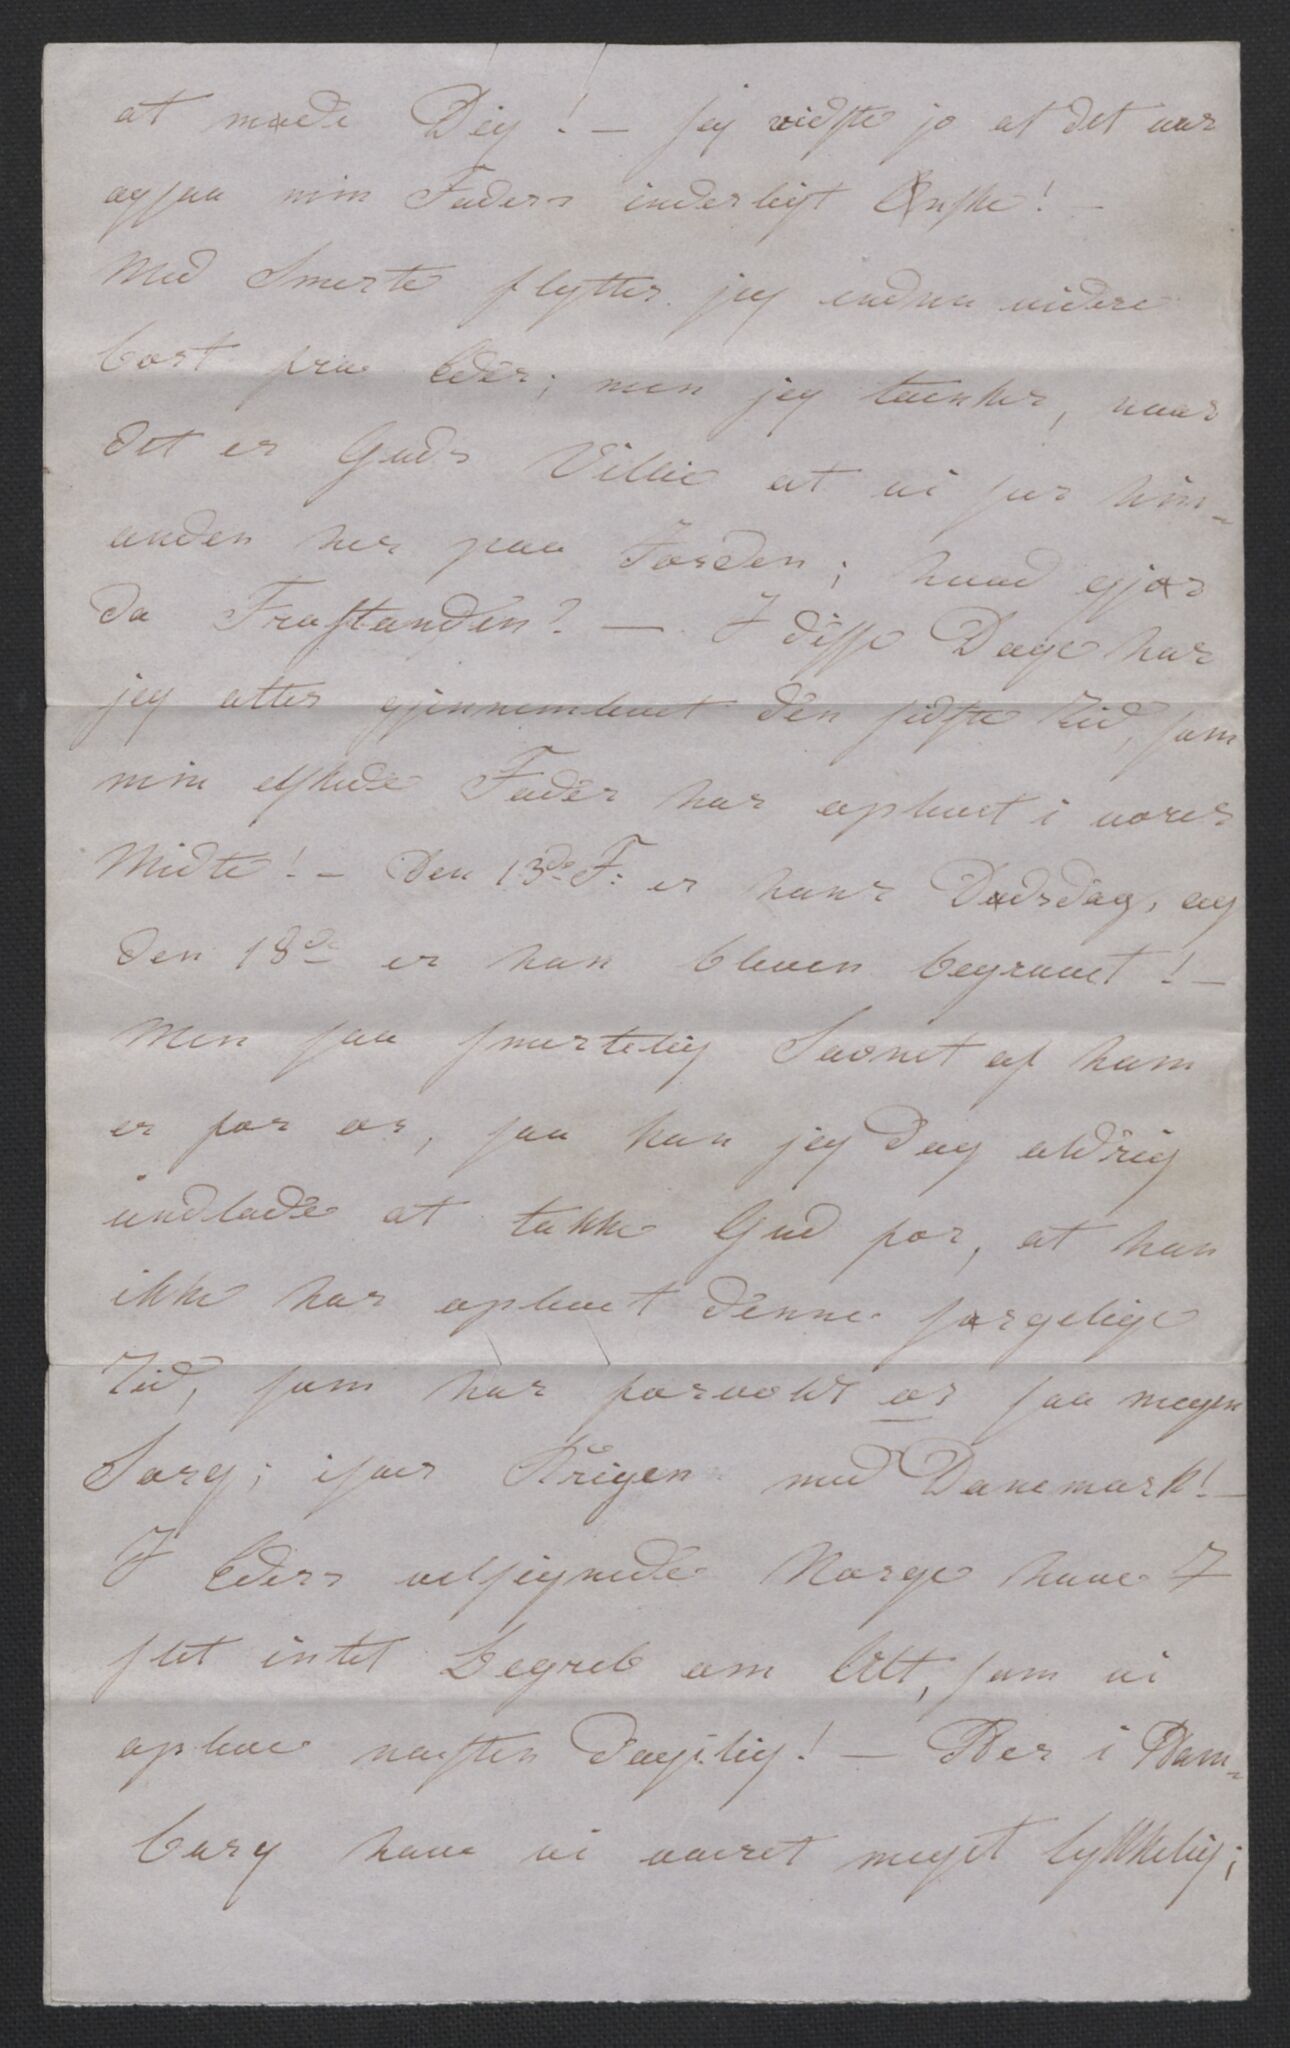 at møde Dig! — jeg vidste jo at det var
ogsaa min Faders inderligt Ønske! —
Med Smerte flytter jeg endnu videre
bort fra Eder; men jeg tænker, naar
det er Guds Villie at vi see hin-
anden her paa Jorden; hvad gjør
da Frastanden? — I disse Dage har
jeg atter gjennemlevet den sidste Tid, som
min elskede Fader har oplevet i vores
Midte! — Den 13de F: er hans Dødsdag, og
den 18de er han bleven begravet! —
Men saa smertelig Savnet af ham
er for os, saa kan jeg dog aldrig
undlade at takke Gud for, at han
ikke har oplevet denne sørgelige
Tid, som har forvoldt os saa megen
Sorg; især Krigen med Danemark! —
I Eders velsignede Norge have I
slet intet Begreb om Alt, som vi
opleve næsten daglig! — Her i Ham-
burg have vi været meget lykkelig;